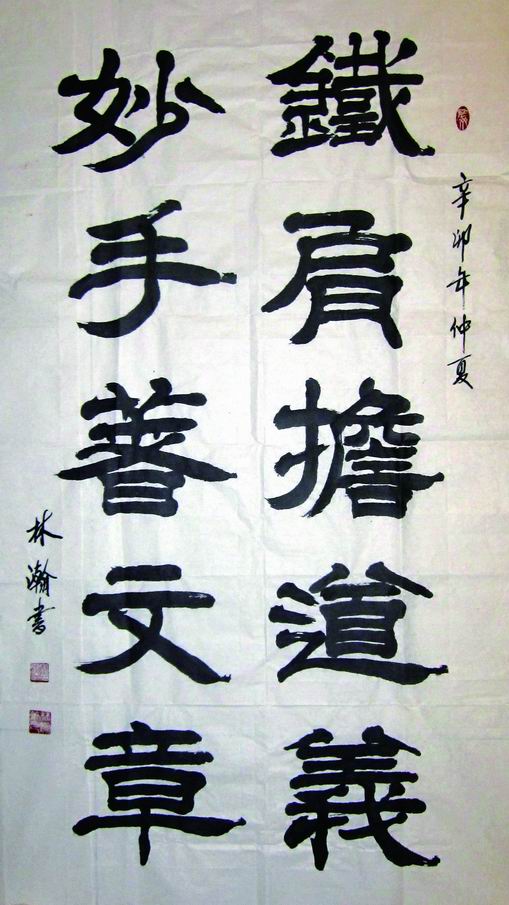 辛卯年仲夏
鐵肩擔道義
妙手著文章
林瀚書